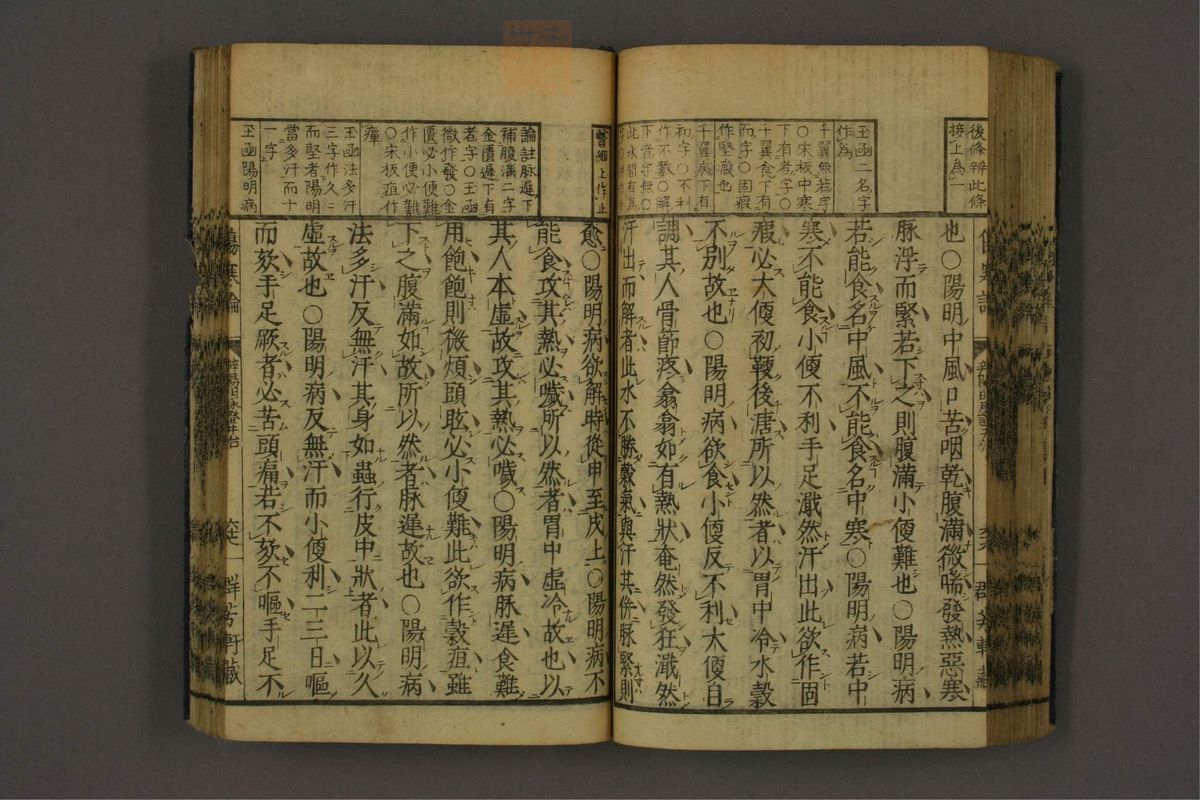 後條辨此條
接上為一
玉函二名字
作為
千翼無若字
○宋板中寒
下有者字○
千翼食下有
而字○固瘕
作堅瘕也
千翼病下有
初字○不利
作不數○解
下者字無○
此水間有為
也○陽明中風口苦咽乾腹滿微喘發熱惡寒
脉浮而緊若下之則腹滿小便難也○陽明病
若能食名中風不能食名中寒○陽明病若中
寒不能食小便不利手足濈然汗出此欲作固
瘕必大便初鞕後溏所以然者以胃中冷水穀
不別故也○陽明病欲食小便反不利大便自
調其人骨節疼翕翕如有熱狀奄然發狂濈然
汗出而解者此水不勝穀氣與汗共併脉緊則
醫細上作止
論註脉遲下
補腹滿二字
金匱遲下有
者字○玉函
微作發○金
匱必小便難
作小便必難
○宋板疸作
癉
玉函法多汗
三字作久二
而堅者陽明
當多汗而十
一字
玉函陽明病
愈○陽明病欲解時從申至戌上○陽明病不
能食攻其熱必噦所以然者胃中虛冷故也以
其人本虛故攻其熱必噦○陽明病脉遲食難
用飽飽則微煩頭眩必小便難此欲作穀疸雖
下之腹滿如故所以然者脉遲故也○陽明病
法多汗反無汗其身如蟲行皮中狀者此以久
虛故也○陽明病反無汗而小便利二三日嘔
而欬手足厥者必苦頭痛若不欬不嘔手足不
傷寒論
群芳軒藏